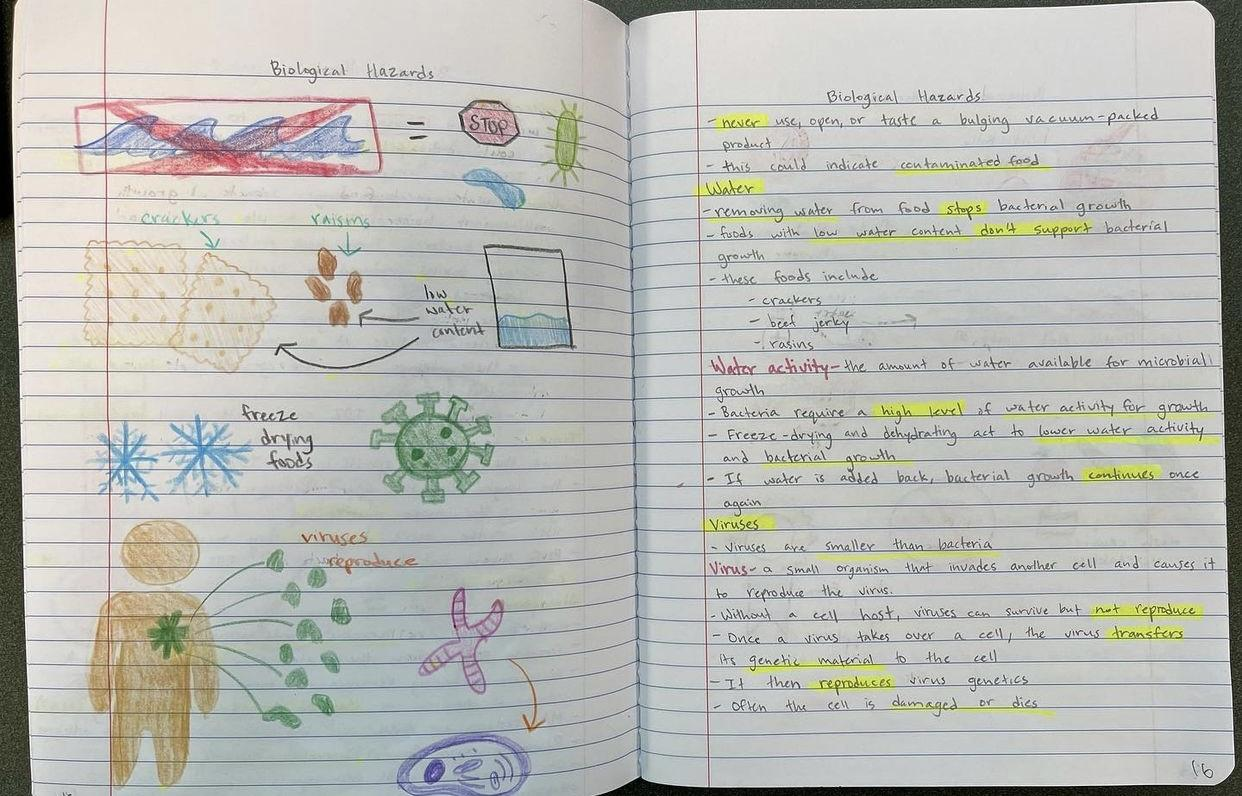 Biological Hazards
= STOP
crackers raisins
low
water
content
freeze
drying
foods
viruses
reproduce
Biological Hazards
- never use, open, or taste a bulging vacuum-packed
product
- this could indicate contaminated food
Water
- removing water from food stops bacterial growth
- foods with low water content don't support bacterial
growth
- these foods include
- crackers
- beef jerky
- rasins
Water activity - the amount of water available for microbial
growth
- Bacteria require a high level of water activity for growth
- Freeze-drying and dehydrating act to lower water activity
and bacterial growth
- If water is added back, bacterial growth continues once
again
Viruses
- Viruses are smaller than bacteria
Virus - a small organism that invades another cell and causes it
to reproduce the virus.
- Without a cell host, viruses can survive but not reproduce
- Once a virus takes over a cell, the virus transfers
its genetic material to the cell
- It then reproduces virus genetics
- Often the cell is damaged or dies
16